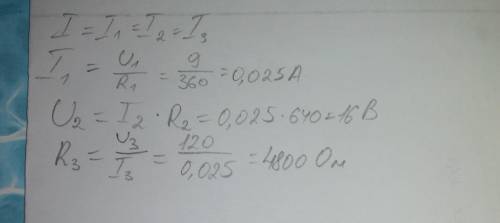 I = I₁ = I₂ = I₃
I₁ = U₁/R₁ = 9/360 = 0,025A
U₂ = I₂ · R₂ = 0,025·640=16 В
R₃ = U₃/I₃ = 120/0,025 = 4800 Ом